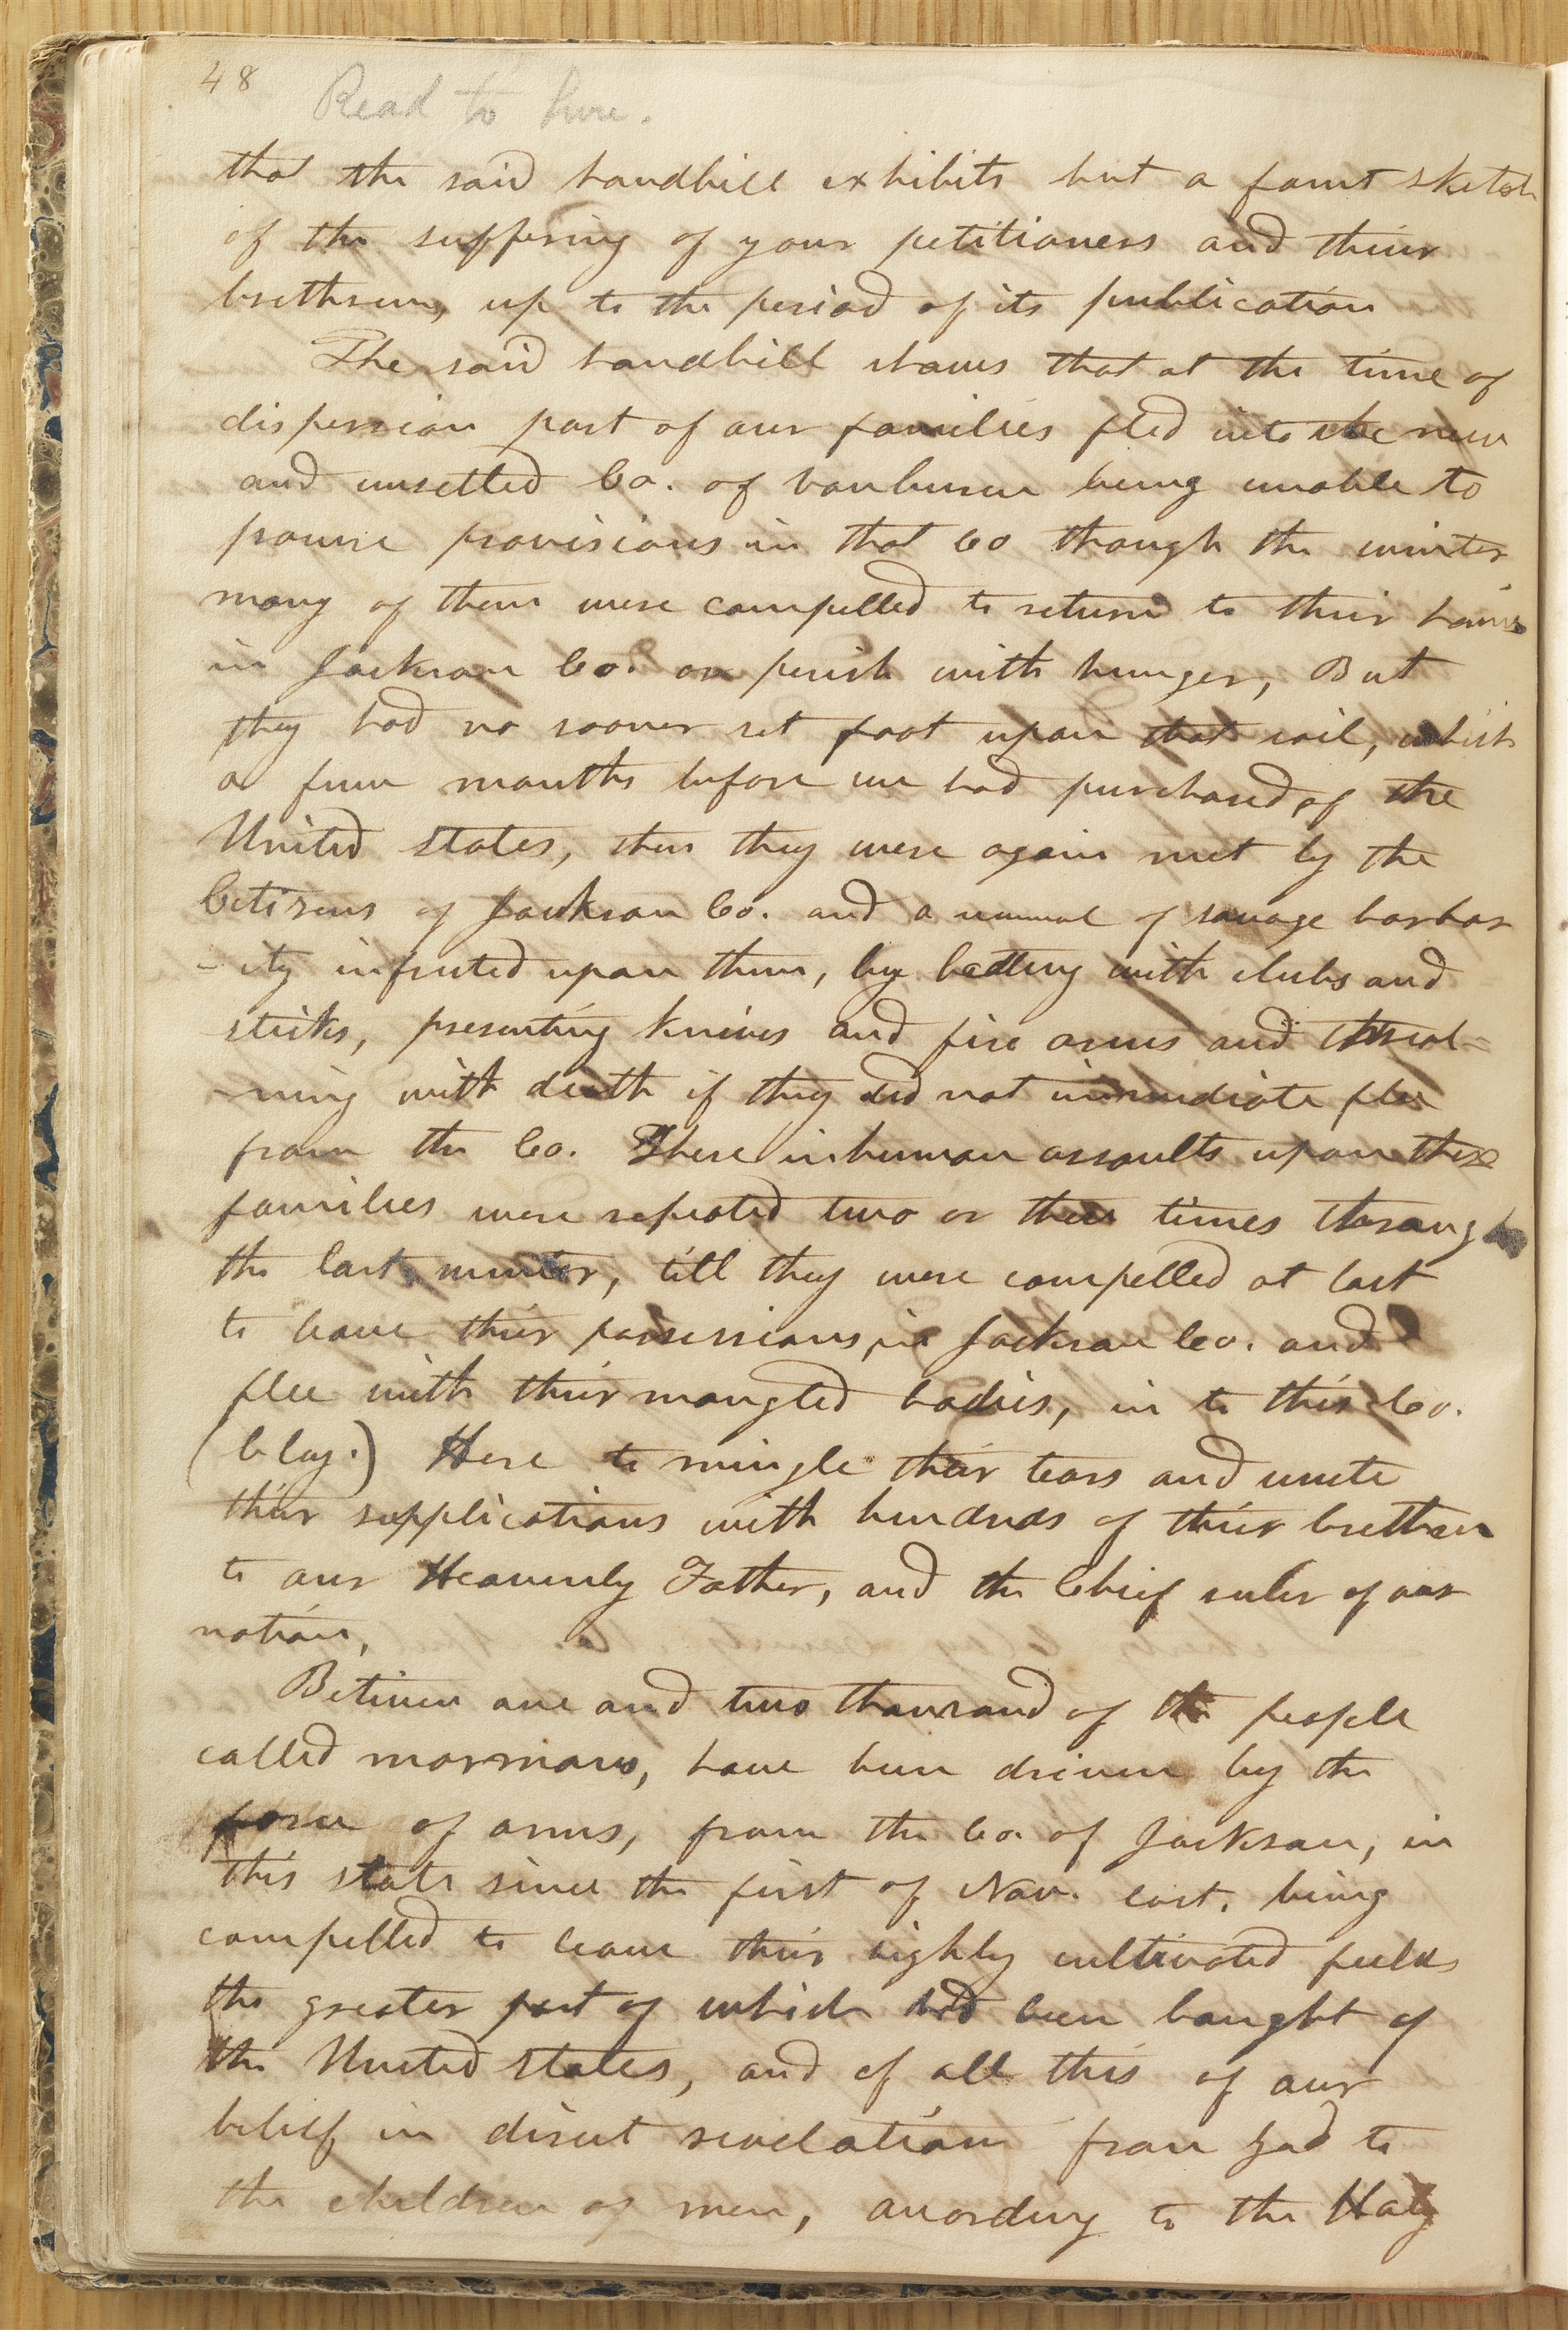 48
Read to here.
that the said handbill exhibits but a faint sketch
of the suffering of your petitioners and their
brethren, up to the period of its publication
The said handbill shows that at the time of
dispersion part of our families fled into the new
and unsetled Co. of vanburen being unable to
procure provisions in that Co though the winter
many of them were compelled to return to their homes
in Jackson Co. or perish with hunger, But
they had no sooner set foot upon that soil, which
a few months before we had purchased, of the
United states, then they were again met by the
Citizens of Jackson Co. and a renewal of savage barbar
-ity infficted upon them, by beating with clubs and
sticks, presenting knives and fire arms and threat-
-ning with death if they did not immediate flee
from the Co. These inhuman assaults upon these
families were repeated two or three times through
the last winter, till they were compelled at last
to leave their possessions, in Jackson Co. and
flee with their mangled bodies, in to this Co.
(Clay.) Here to mingle their tears and unite
their supplications with hundreds of their brethren
to our Heavenly Father, and the Chief ruler of our
nation,
Betwen one and two thousand of the people
called mormons, have been driven by the
force of arms, from the Co. of Jackson, in
this state since the first of Nov. last, being
compelled to leave their highly cultivated fields
the greater part of which had been bought of
the United states, and of all this of our
belief in direct revelation from God to
the children of men, according to the Holy